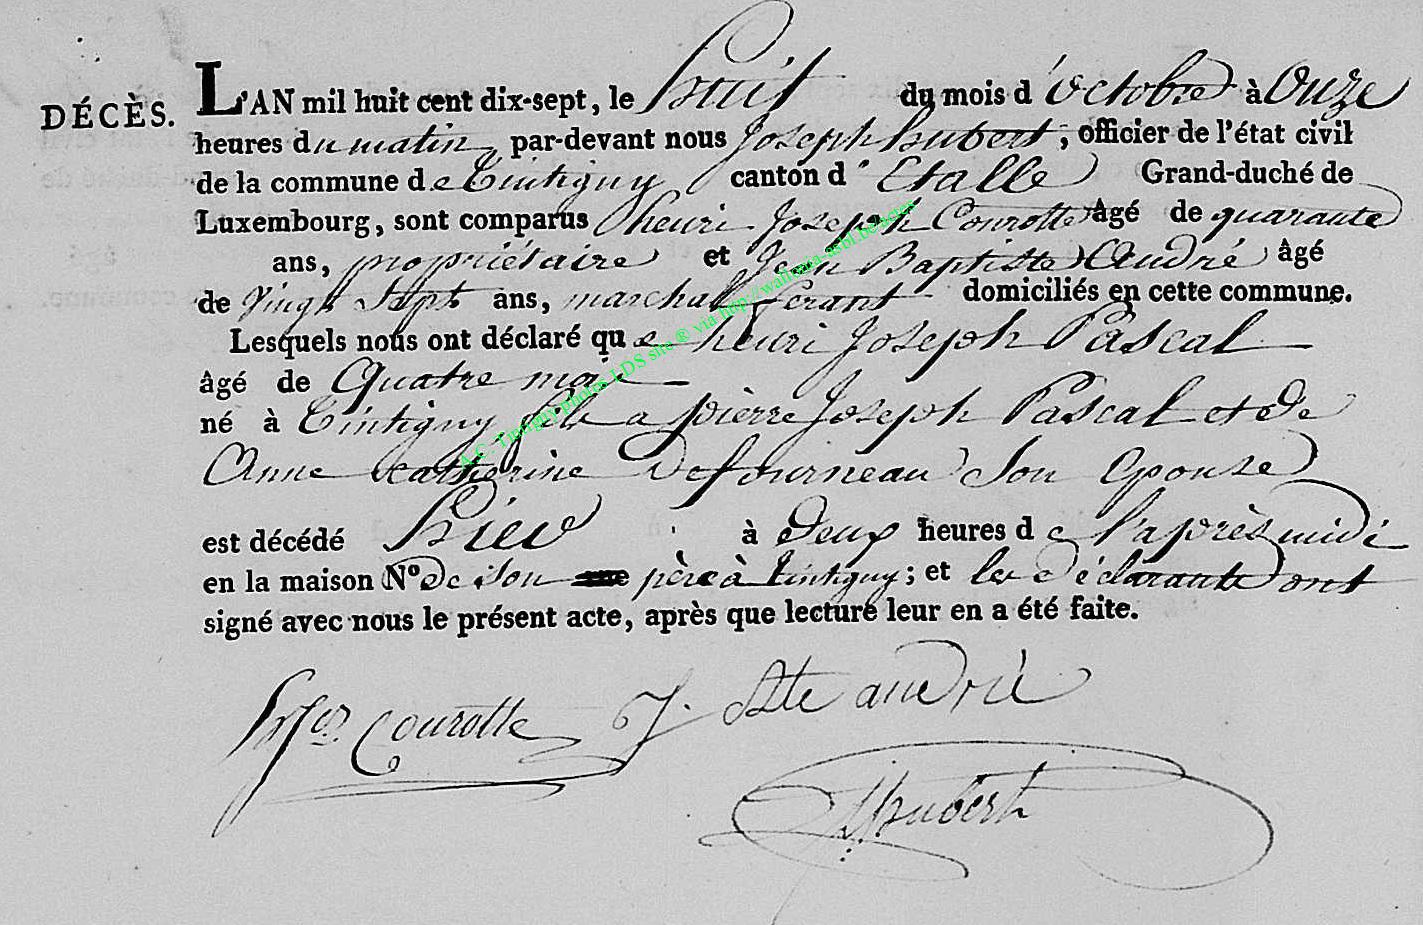 DÉCÈS.
L'AN mil huit cent dix-sept, le huit du mois d'octobre à Onze
heures du matin, par-devant nous Joseph hubert, officier de l'état civil
de la commune de Tintigny canton d'Etalle Grand-duché de
Luxembourg, sont comparus henri Joseph Courotte âgé de quarante
ans, propriétaire et Jean Baptiste André âgé
de Vingt Sept ans, marchal ferant domiciliés en cette commune.
Lesquels nous ont déclaré que henri Joseph Pascal
âgé de Quatre mois
né à Tintigny fils a pierre Joseph Pascal et de
Anne Catherine Defourneau Son Epouse
est décédé hier à deux heures de l'après midi
en la maison N° de son père à tintigny; et les déclarants ont
signé avec nous le présent acte, après que lecture leur en a été faite.
Courotte J. Bte andré
Jhubert
A.C. Tintigny photos LDS site ® via http://wallonia-asbl.be/actes